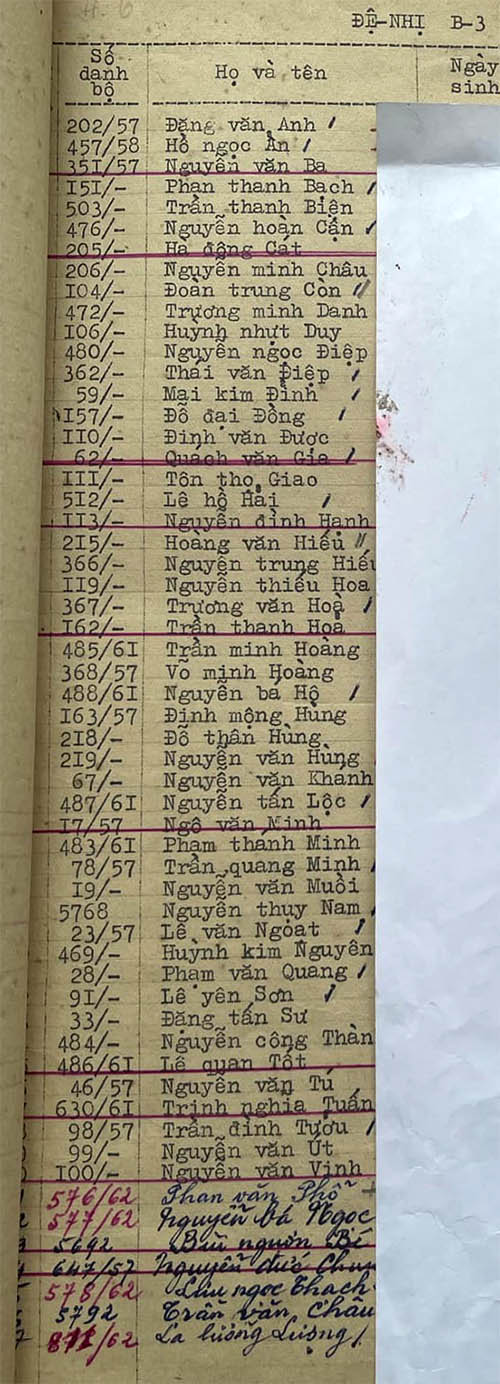 ĐỆ-NHỊ B-3
Số danh bộ Họ và tên Ngày sinh
202/57 Đặng văn Anh
457/58 Hồ ngọc Ẩn
351/57 Nguyễn văn Ba
151/- Phan thanh Bạch
503/- Trần thanh Biện
476/- Nguyễn hoàn Cận
205/- Hà đông Cát
206/- Nguyễn minh Châu
104/- Đoàn trung Còn
472/- Trương minh Danh
106/- Huỳnh nhựt Duy
480/- Nguyễn ngọc Điệp
362/- Thái văn Điệp
59/- Mai kim Đỉnh
157/- Đỗ đại Đồng
110/- Đinh văn Được
62/- Quách văn Gia
111/- Tôn thọ Giao
512/- Lê hồ Hải
113/- Nguyễn đình Hạnh
215/- Hoàng văn Hiếu
366/- Nguyễn trung Hiếu
119/- Nguyễn thiếu Hoa
367/- Trương văn Hoà
162/- Trần thanh Hoà
485/61 Trần minh Hoàng
368/57 Võ minh Hoàng
488/61 Nguyễn bá Hộ
163/57 Đinh mộng Hùng
218/- Đỗ thân Hùng
219/- Nguyễn văn Hùng
67/- Nguyễn văn Khánh
487/61 Nguyễn tấn Lộc
17/57 Ngô văn Minh
483/61 Phạm thanh Minh
78/57 Trần quang Minh
19/- Nguyễn văn Muôi
5768 Nguyễn thuỵ Nam
23/57 Lê văn Ngoạt
469/- Huỳnh kim Nguyên
28/- Phạm văn Quang
91/- Lê yên Sơn
33/- Đặng tấn Sư
484/- Nguyễn công Thàn
486/61 Lê quan Tốt
46/57 Nguyễn văn Tú
630/61 Trịnh nghĩa Tuấn
98/57 Trần đình Tựơu
99/- Nguyễn văn Út
100/- Nguyễn văn Vinh
576/62 Phan văn Phố
577/62 Nguyễn bá Ngọc
5692 Bùi nguơn Bé
647/57 Nguyễn đức
578/62 Lưu ngọc Thạch
5792 Trần văn Châu
/62 La lương Lượng